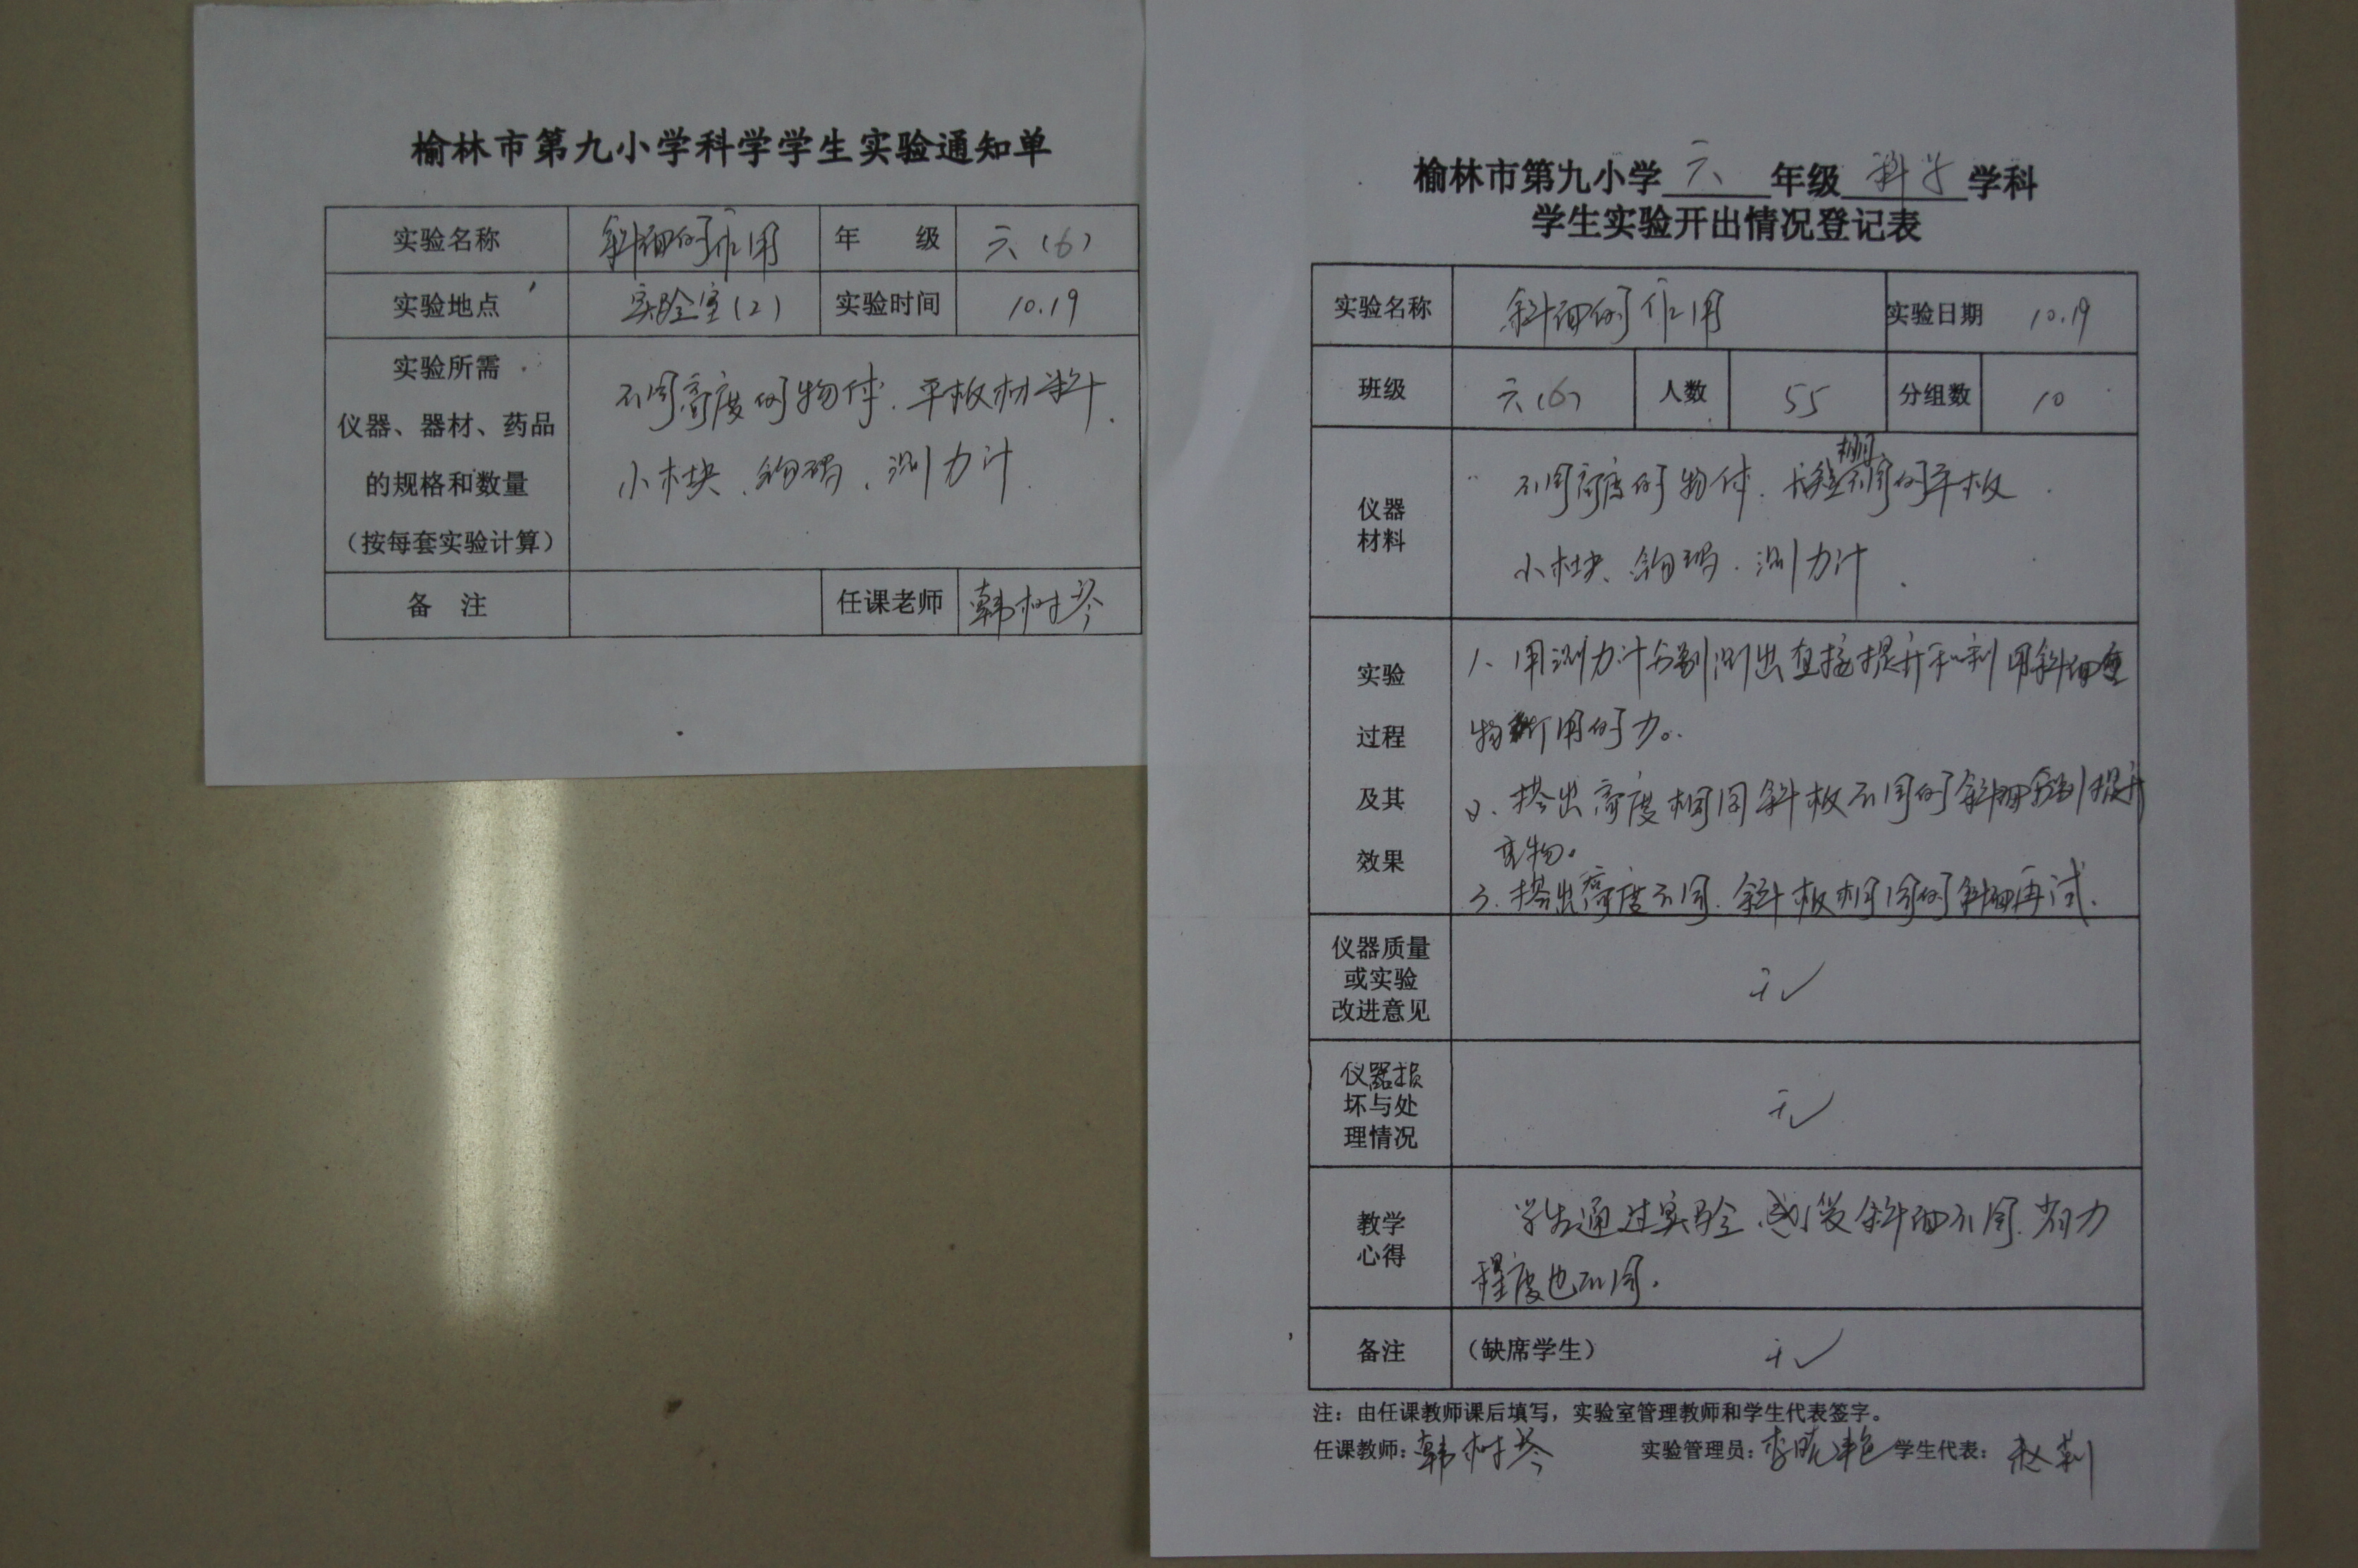 榆林市第九小学科学学生实验通知单
实验名称 斜面的作用 年 级 六（6）
实验地点 实验室（2） 实验时间 10.19
实验所需
仪器、器材、药品
的规格和数量
（按每套实验计算）
不同高度的物体、平板材料、
小木块、钩码、测力计.
备 注 任课老师 韩树琴
榆林市第九小学 六 年级 科学 学科
学生实验开出情况登记表
实验名称 斜面的作用 实验日期 10.19
班级 六(6) 人数 55 分组数 10
仪器
材料
不同高度的物体、长短不同的平板.
小木块、钩码、测力计.
实验
过程
及其
效果
1、用测力计分别测出直接提升和利用斜面重
物所用的力。
2、搭出高度相同斜板不同的斜面分别提升
重物。
3、搭出高度不同、斜板相同的斜面再试.
仪器质量
或实验
改进意见
无
仪器损
坏与处
理情况
无
教学
心得
学生通过实验感受斜面不同、省力
程度也不同.
备注 （缺席学生） 无
注：由任课教师课后填写，实验室管理教师和学生代表签字。
任课教师：韩树琴 实验管理员：李晓艳 学生代表：赵莉